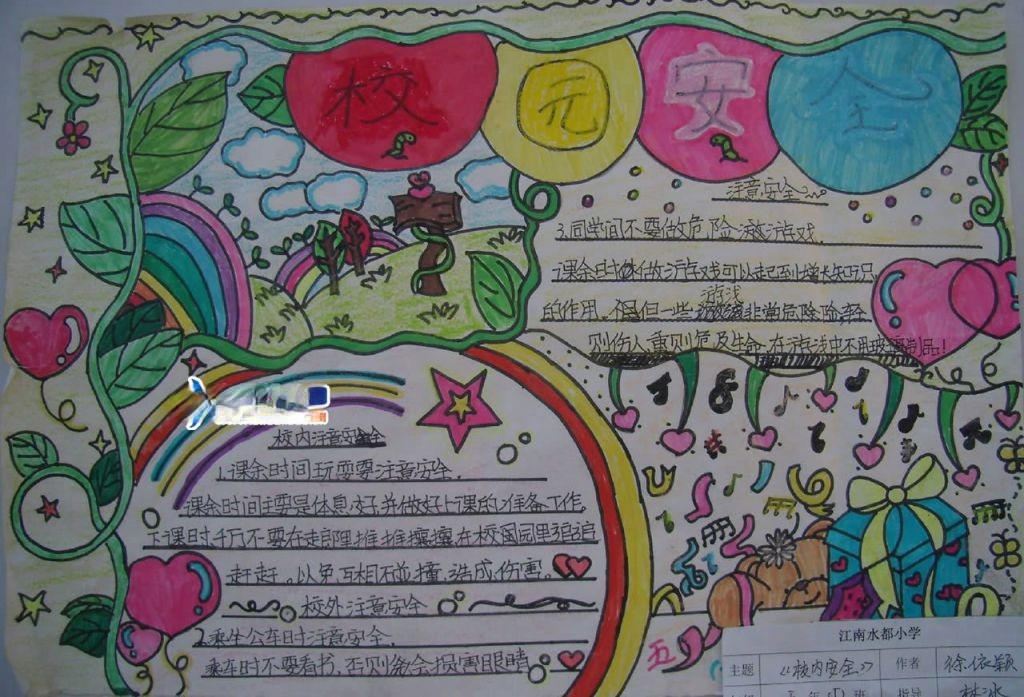 校元安全
注意安全
3.同学间不要做危险游戏.
课余时间做游戏可以起到增长知识
游戏
的作用.但一些非常危险
则伤人重则危及生命.在游戏中不用玻璃制品!
校内注意安全
1.课余时间玩耍要注意安全.
课余时间主要是休息好并做好上课的准备工作。
下课时千万不要在走郎里推推攘攘在校园里追追
赶赶。以免互相碰撞.造成伤害。
校外注意安全
2.乘坐公车时注意安全.
乘车时不要看书.否则会损害眼睛
五
江南水都小学
主题 《校内安全》 作者 徐依颖
年 班 指导 林冰